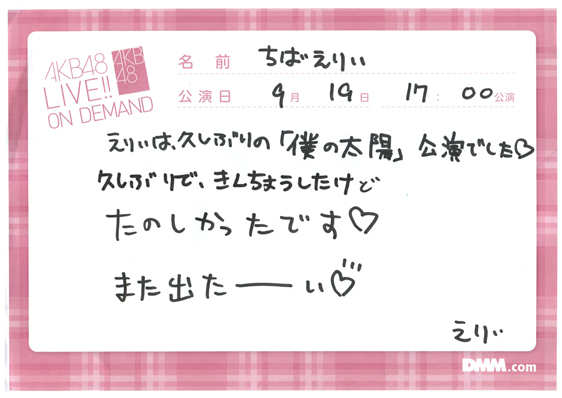 AKB48
LIVE!!
ON DEMAND
AKB
48
名前 ちばえりい
公演日 9月 19日 17:00公演
えりぃは、久しぶりの「僕の太陽」公演でした♡
久しぶりで、きんちょうしたけど
たのしかったです♡
また出たーーい♡
えりぃ
DMM.com